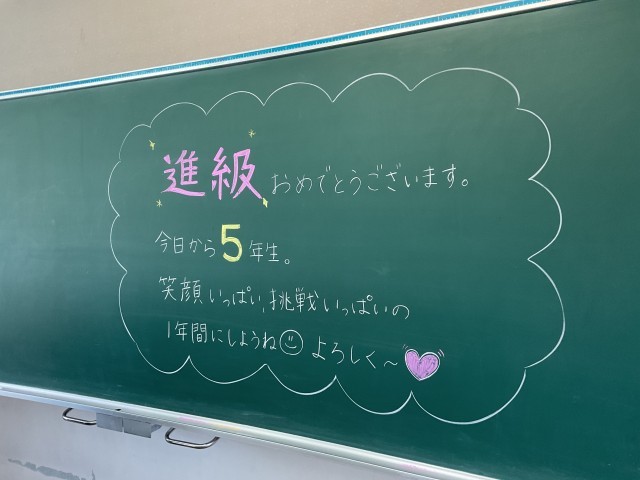 進級おめでとうございます。
今日から5年生。
笑顔いっぱい、挑戦いっぱいの
1年間にしようね☺よろしく〜